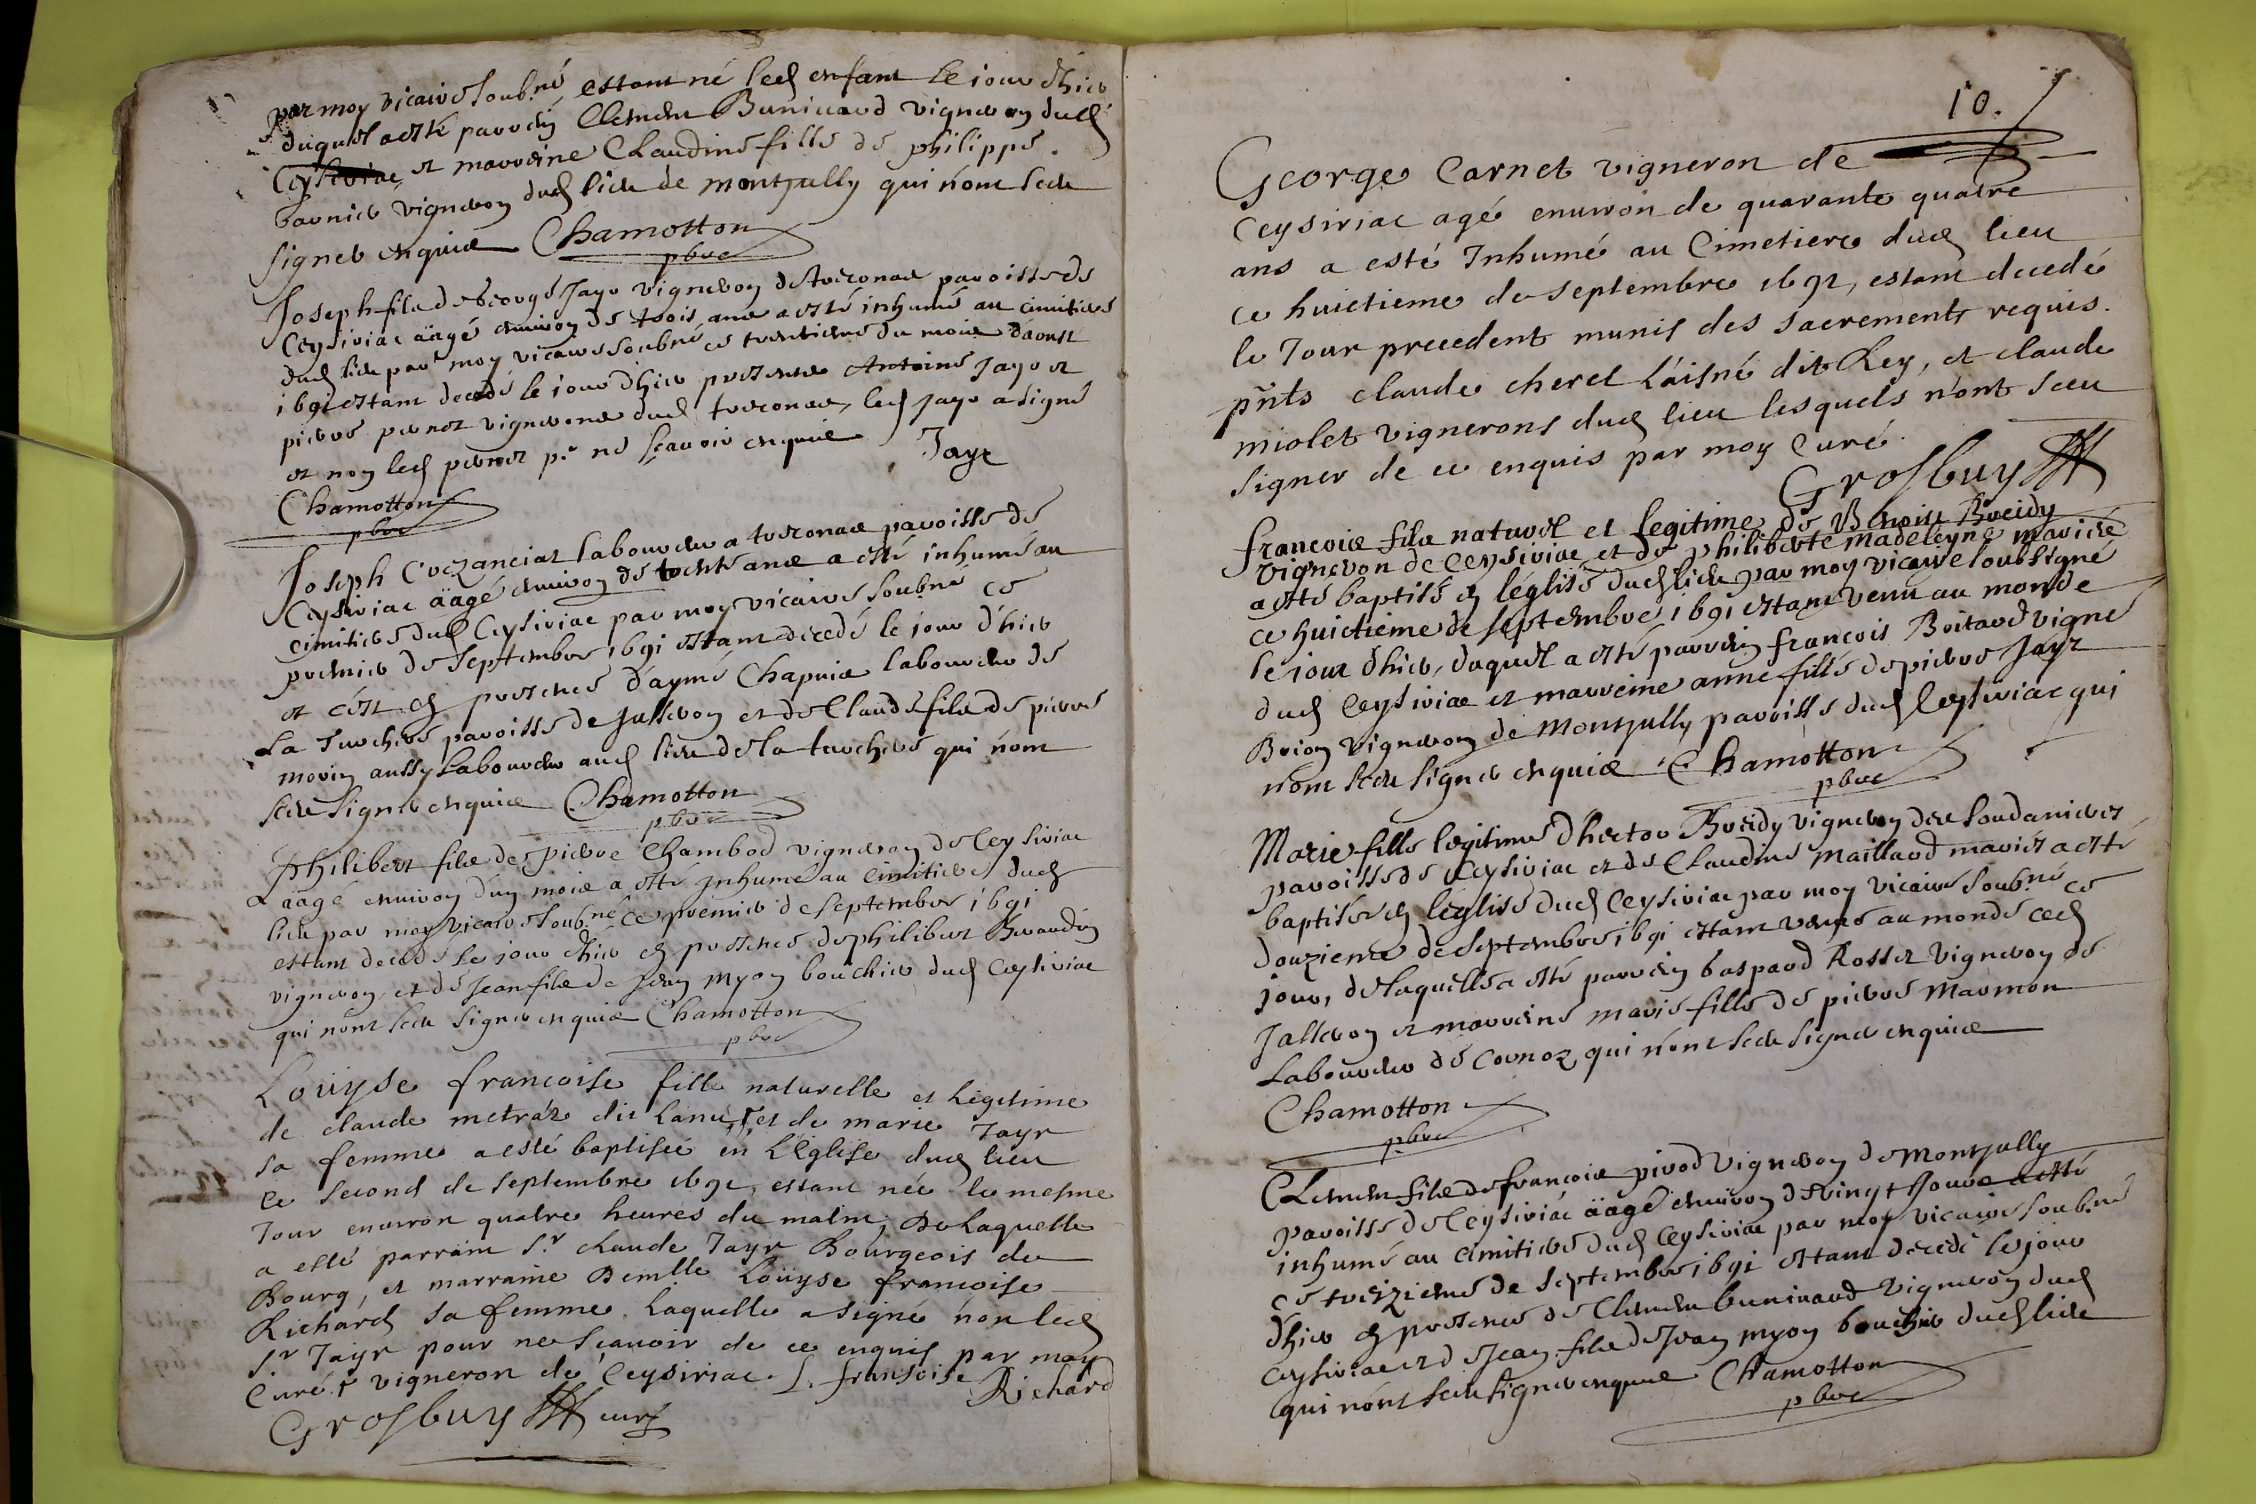 par moy vicaire soub.né estant né led enfant le jour d'hier
duquel a esté parrein Clement Buniuard vigneron dud
Ceyseriac et marreine Claudine fille de philippe
vigneron dud lieu de montjully qui n'ont sceu
signer enquis Chamotton
pbre
Joseph fils de George Jayr vigneron de treconas paroisse de
Ceysiriac äagé enuiron de trois ans a esté inhumé au cimitiere
dud lieu par moy vicaire soub.né ce trentieme du mois d'aoust
1691 estant decedé le jour d'hier presents Antoine Jayr et
pierre pernet vignerons dud treconas, led jayr a signé
et non led pernet p.r ne sçavoir enquis Jayr
Chamotton
pbre
Joseph Crezanciat laboureur a treconas paroisse de
Ceysiriac äagé enuiron de trente ans a esté inhumé au
cimitiere dud Ceysiriac par moy vicaire soub.né ce
premier de septembre 1691 estant decedé le jour d'hier
et c'est en presence d'aymé Chapuis laboureur de
la Turchere paroisse de Jasseron et de Claude fils de pierre
morin aussy laboureur aud lieu de la turchere qui n'ont
sceu signer enquis Chamotton
pbre
Philibert fils de pierre Chambod vigneron de Ceysiriac
äagé enuiron d'un mois a esté inhumé au cimitiere dud
lieu par moy vicaire soub.né ce premier de septembre 1691
estant decedé le jour d'hier en presence de philibert Beraudin
vigneron et de Jean fils de Jean myon bouchier dud Ceysiriac
qui n'ont sceu signer enquis Chamotton
pbre
Loüyse francoise fille naturelle et legitime
de claude metráz dit Lanu et de marie Jayr
sa femme a esté baptisée en L'Eglise dud lieu
le second de septembre 1691, estant née le mesme
Jour enuiron quatre heures du matin, De Laquelle
a esté parrain s.r claude Jayr Bourgeois de
Bourg, et marraine Demlle Loüyse francoise
Richard sa femme laquelle a signé non led
s.r Jayr pour ne scauoir de ce enquis par moy
curé + vigneron de Ceysiriac L. fransoise Richard
Grosbuy curé
10.
George Carnet vigneron de
Ceysiriac agé enuiron de quarante quatre
ans a esté Inhumé au Cimetiere dud lieu
ce huictieme de septembre 1691, estant decedé
le Jour precedent munis des sacrements requis.
pñts claude cheret L'aisné dit Rey, et claude
miolet vignerons dud lieu lesquels n'ont sceu
signer de ce enquis par moy Curé
Grosbuy
francois fils naturel et legitime de Benoit Breidy
vigneron de Ceysiriac et de philiberte madeleyne mariés
a esté baptisé en l'église dud lieu par moy vicaire soubsigné
ce huictieme de septembre 1691 estant venu au monde
le jour d'hier, duquel a esté parrein françois Boitard vigne
dud Ceysiriac et marreine anne fille de pierre Jayr
Brion vigneron de Montjully paroisse dud Ceysiriac qui
n'ont sceu signer enquis Chamotton
pbre
Marie fille legitime d'hector Breidy vigneron des soudanieres
paroisse de Ceysiriac et de Claudine Maillard mariés a esté
baptisée en l'eglise dud Ceysiriac par moy vicaire soub.né ce
douzieme de septembre 1691 estant venue au monde ced
jour, de laquelle a esté parrein Gaspard Rosset vigneron de
Jasseron et marreine marie fille de pierre Marmon
Laboureur de Cornoz qui n'ont sceu signer enquis
Chamotton
pbre
Clement fils de francois pirod vigneron de Montjully
paroisse de Ceysiriac äagé enuiron de vingt jours a esté
inhumé au cimitiere dud Ceysiriac par moy vicaire soub.né
ce treizzieme de septembre 1691 estant decedé le jour
d'hier en presence de Clement buniuard vigneron dud
Ceysiriac et de Jean fils de Jean myon bouchier dud lieu
qui n'ont sceu signer enquis Chamotton
pbre